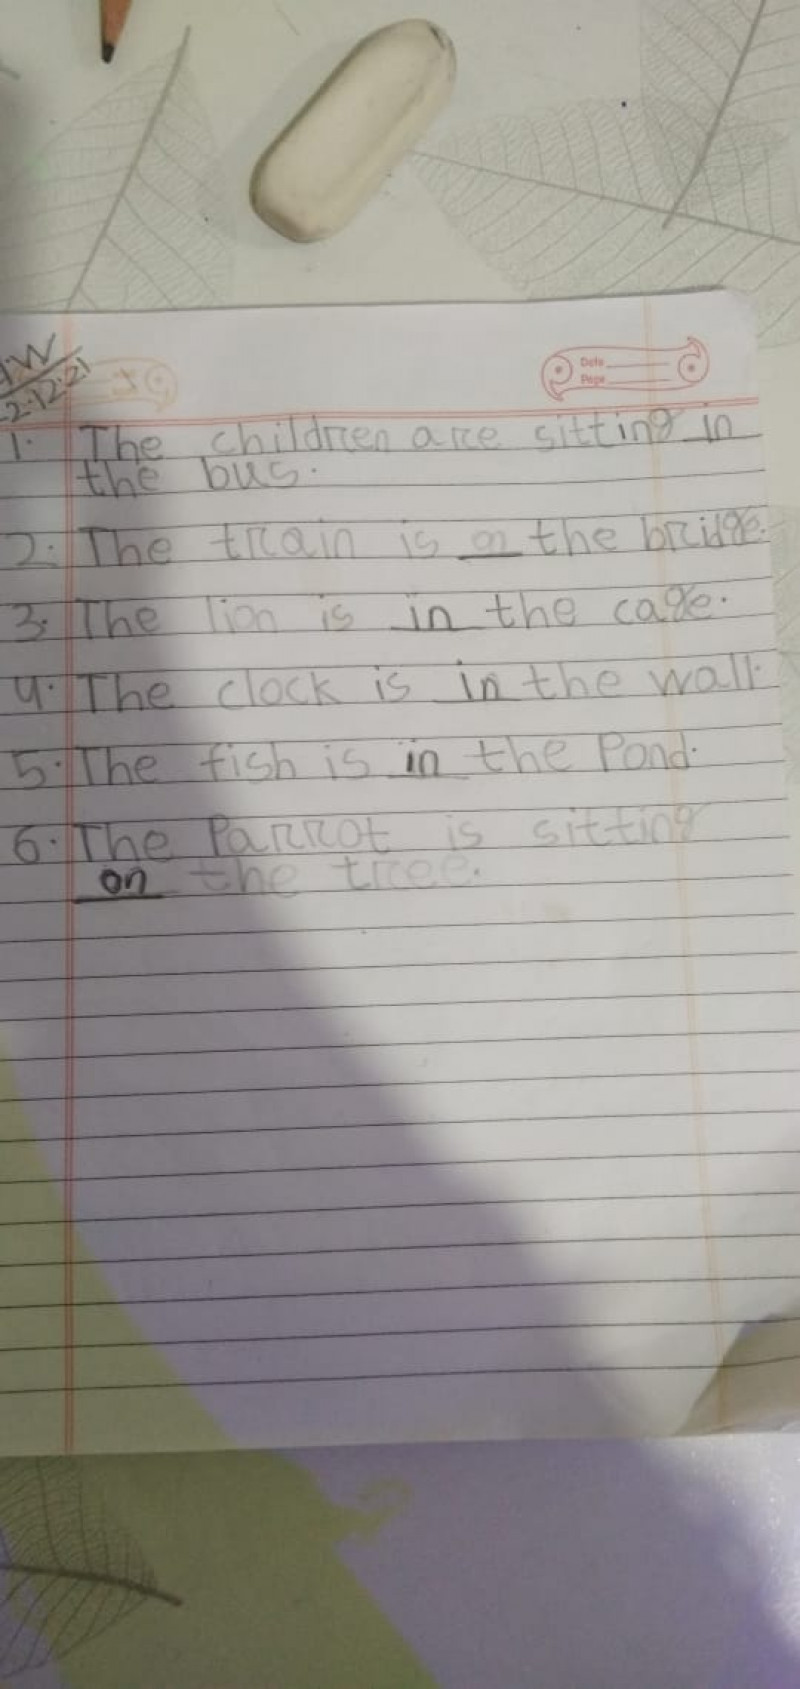 Date
Page
1. The children are sitting in
the bus.
2. The train is on the bridge.
3. The lion is in the cage.
4. The clock is in the wall.
5. The fish is in the Pond.
6. The Parrot is sitting
on the tree.